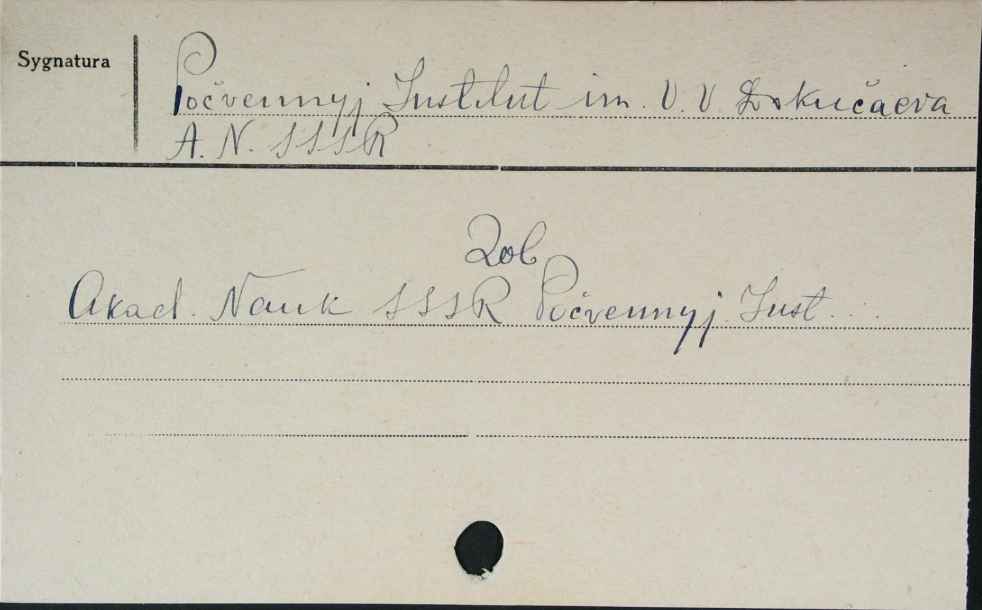 Sygnatura
Počvennyj Institut im. V. V. Dokučaeva
A. N. SSSR
Zob
Akad. Nauk SSSR Počvennyj Inst...